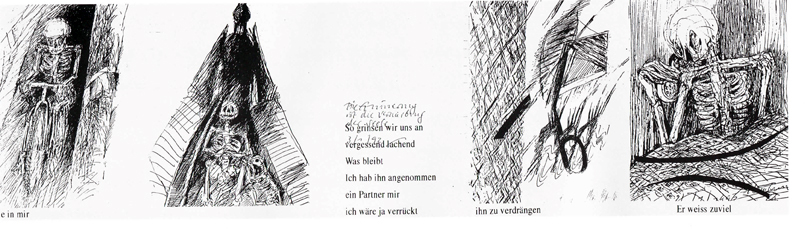 e in mir
Die Erinnerung
ist die
der
So grinsen wir uns an
vergessend lachend
Was bleibt
Ich hab ihn angenommen
ein Partner mir
ich wäre ja verrückt
ihn zu verdrängen
Er weiss zuviel